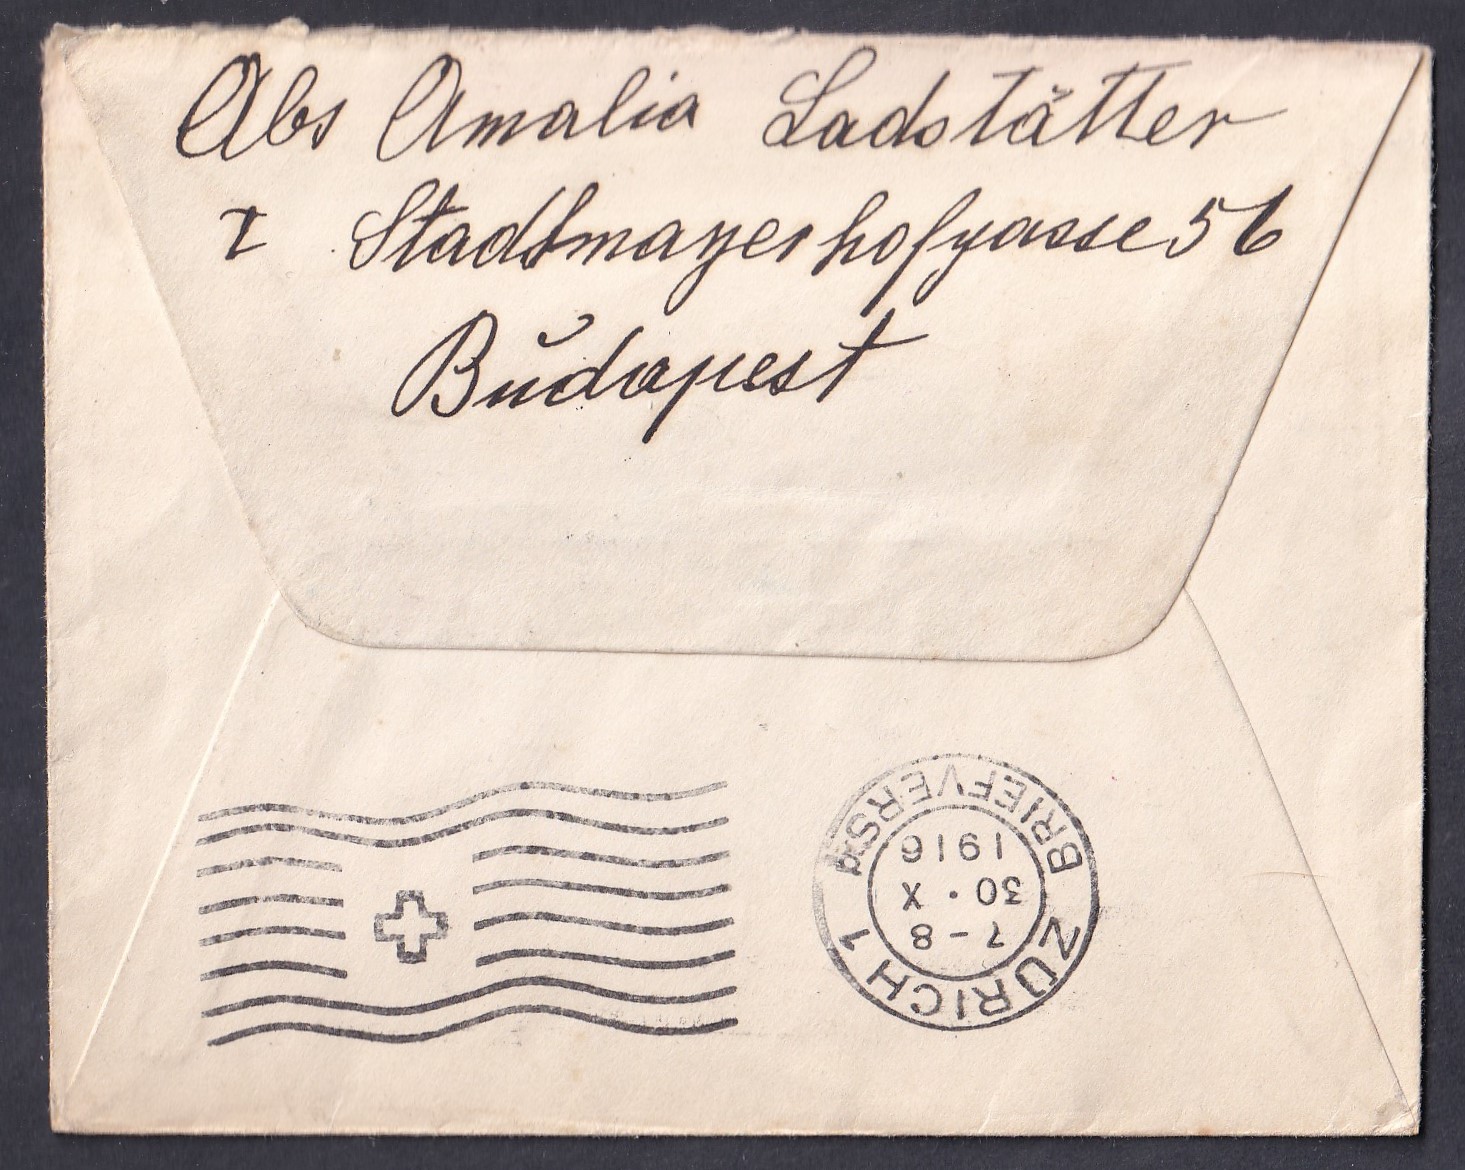 Abs Amalia Ladstätter
I Stadtmayerhofgasse 56
Budapest
ZÜRICH 1
BRIEFVERS4
7-8
30·X
1916